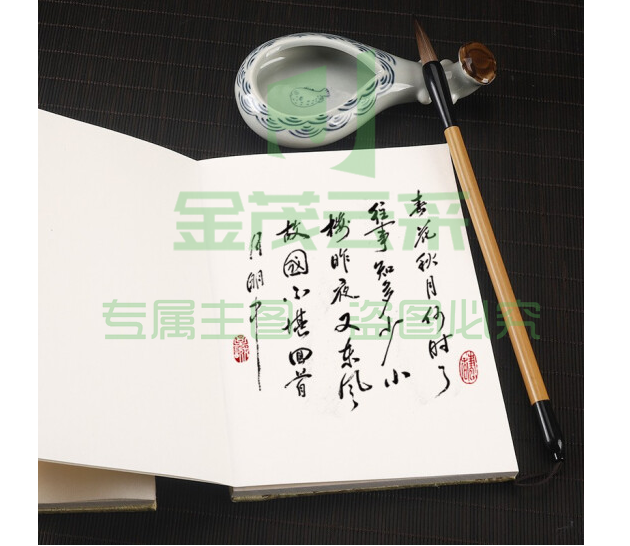 春花秋月何时了
往事知多少小
楼昨夜又东风
故國不堪回首
月明中
金茂云采
专属主图 盗图必究